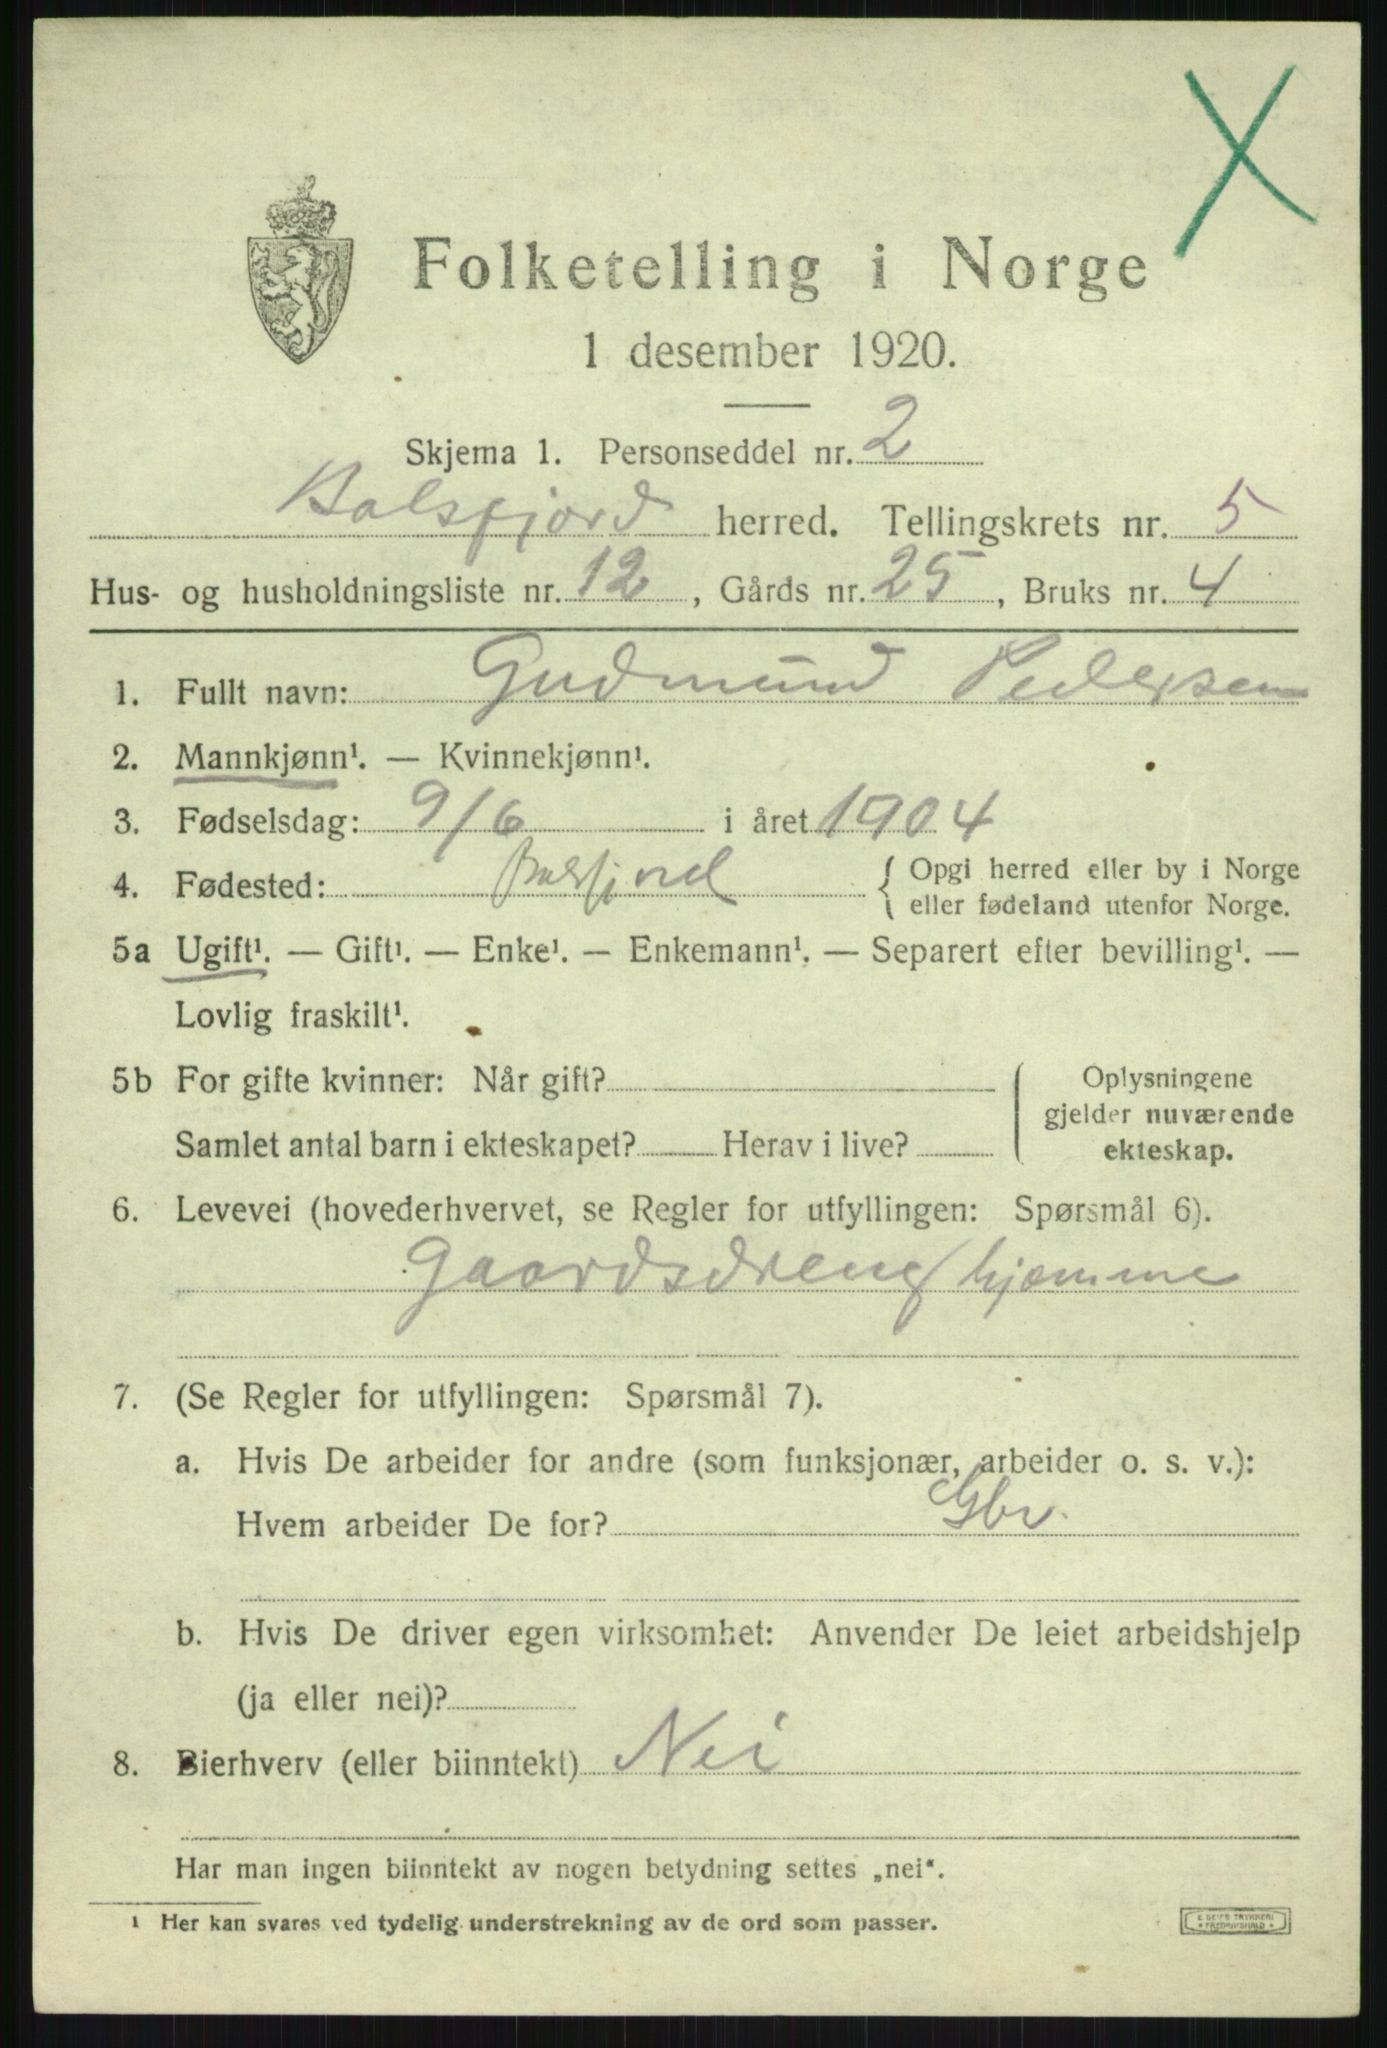 Folketelling i Norge
1 desember 1920.
Skjema 1. Personseddel nr. 2
Balsfjord herred. Tellingskrets nr. 5
Hus- og husholdningsliste nr. 12, Gårds nr. 25, Bruks nr. 4
1. Fullt navn: Gudmund Pedersen
2. Mannkjønn¹. — Kvinnekjønn¹.
3. Fødselsdag: 9/6 i året 1904
4. Fødested: Balsfjord { Opgi herred eller by i Norge
eller fødeland utenfor Norge.
5a Ugift¹. — Gift¹. — Enke¹. — Enkemann¹. — Separert efter bevilling¹. —
Lovlig fraskilt¹.
5b For gifte kvinner: Når gift?
Samlet antal barn i ekteskapet? Herav i live?
Oplysningene
gjelder nuværende
ekteskap.
6. Levevei (hovederhvervet, se Regler for utfyllingen: Spørsmål 6).
Gaardsdreng hjemme
7. (Se Regler for utfyllingen: Spørsmål 7).
a. Hvis De arbeider for andre (som funksjonær, arbeider o. s. v.):
Hvem arbeider De for? Gbr.
b. Hvis De driver egen virksomhet: Anvender De leiet arbeidshjelp
(ja eller nei)?
8. Bierhverv (eller biinntekt) Nei
Har man ingen biinntekt av nogen betydning settes „nei“.
¹ Her kan svares ved tydelig understrekning av de ord som passer.
E. SEM'S TRYKKERI
FREDRIKSHALD